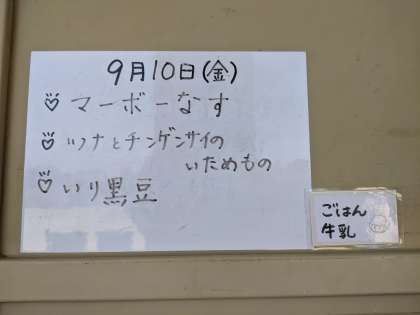 9月10日(金)
マーボーなす
ツナとチンゲンサイの
いためもの
いり黒豆
ごはん
牛乳